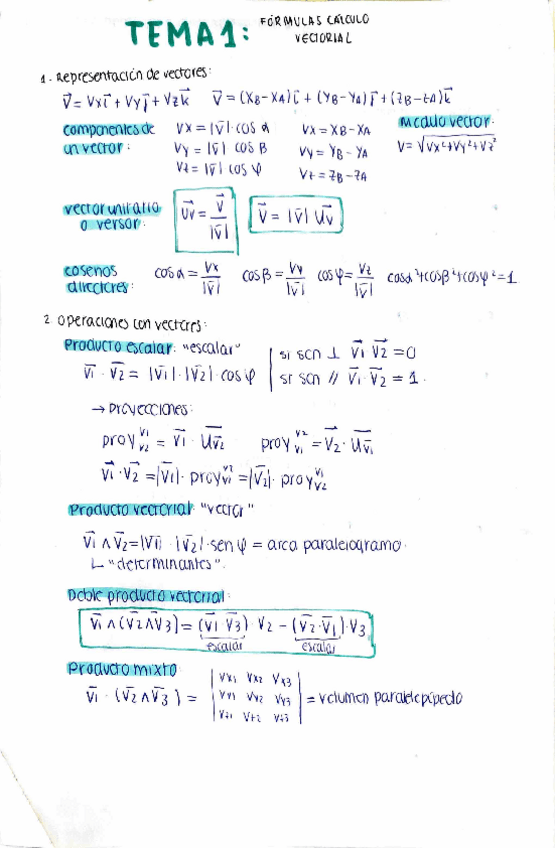 TEMA 1: FÓRMULAS CÁLCULO VECTORIAL
1. Representación de vectores:
V⃗ = Vx i⃗ + Vy j⃗ + Vz k⃗   V⃗ = (XB-XA) i⃗ + (YB-YA) j⃗ + (ZB-ZA) k⃗
componentes de un vector:
Vx = |V⃗| · cos α   Vx = XB-XA
Vy = |V⃗| cos β   Vy = YB-YA
Vz = |V⃗| cos φ   Vz = ZB-ZA
Módulo vector:
V = √Vx²+Vy²+Vz²
vector unitario o versor:
U⃗v = V⃗/|V⃗|   V⃗ = |V⃗| U⃗v
cosenos directores:
cos α = Vx/|V⃗|   cos β = Vy/|V⃗|   cos φ = Vz/|V⃗|   cos α²+cos β²+cos φ²=1
2. Operaciones con vectores:
Producto escalar: "escalar"
V1⃗ · V2⃗ = |V1⃗| · |V2⃗| · cos φ
si son ⊥ V1⃗ V2⃗ = 0
si son // V1⃗ · V2⃗ = 1.
→ Proyecciones:
proy V1 V2 = V1⃗ · UV2⃗   proy V2 V1 = V2⃗ · UV1⃗
V1⃗ · V2⃗ = |V1⃗| · proy V2 V1 = |V2⃗| · proy V1 V2
Producto vectorial: "vector"
V1⃗ ∧ V2⃗ = |V1⃗| · |V2⃗| · sen φ = área paralelogramo.
↳ "determinantes".
Doble producto vectorial:
V1⃗ ∧ (V2⃗ ∧ V3⃗) = (V1⃗ V3⃗) · V2 - (V2⃗ · V1⃗) · V3
escalar   escalar
Producto mixto:
V1⃗ · (V2⃗ ∧ V3⃗) = | Vx1 Vx2 Vx3 | = volumen paralelepípedo
| Vy1 Vy2 Vy3 |
| Vz1 Vz2 Vz3 |